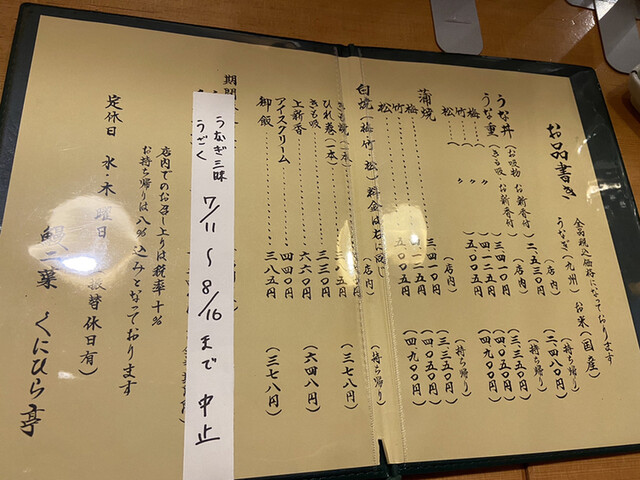 お品書き
全品税込価格になっております
うなぎ(九州) お米(国産)
(店内) (持ち帰り)
うな丼(お吸物 お新香付) 二、五三〇円 (二、四八〇円)
うな重(きも吸 お新香付)
(店内) (持ち帰り)
梅 三、四一〇円 (三、三五〇円)
竹 〃 四、一二五円 (四、〇〇〇円)
松 〃 五、〇〇五円 (四、九〇〇円)
蒲焼
(店内) (持ち帰り)
梅 三、四一〇円 (三、三五〇円)
竹 四、一二五円 (四、〇〇〇円)
松 五、〇〇五円 (四、九〇〇円)
白焼(梅・竹・松)料金は右に同じ
(店内) (持ち帰り)
きも焼(一本)
ひれ巻(一本) 三三〇円
きも吸 三三〇円 (三七八円)
上新香 六六〇円 (六四八円)
アイスクリーム 四四〇円
御飯 三八五円 (三七八円)
期間
うなぎ三昧
うざく
7/11 〜 8/16 まで 中止
店内でのお召し上りは税率十%
お持ち帰りは八%込みとなっております
定休日 水・木曜日 (振替休日有)
鰻二葉 くにひら亭